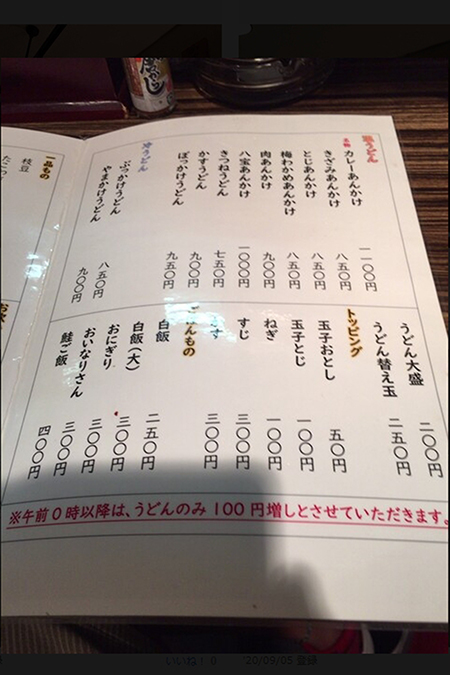 温うどん
名物 カレーあんかけ 一一〇〇円
きざみあんかけ 八五〇円
とじあんかけ 八五〇円
梅わかめあんかけ 八五〇円
肉あんかけ 九〇〇円
八宝あんかけ 一〇〇〇円
きつねうどん 七五〇円
かすうどん 九〇〇円
ぼっかけうどん 九五〇円
冷うどん
ぶっかけうどん 八五〇円
やまかけうどん 九〇〇円
うどん大盛 二〇〇円
うどん替え玉 二五〇円
トッピング
玉子おとし 五〇円
玉子とじ 一〇〇円
ねぎ 一〇〇円
すじ 三〇〇円
三〇〇円
ごはんもの
白飯 二五〇円
白飯(大) 三〇〇円
おにぎり 三〇〇円
おいなりさん 三〇〇円
鮭ご飯 四〇〇円
※午前0時以降は、うどんのみ100円増しとさせていただきます。
一品もの
枝豆
いいね! 0 '20/09/05 登録